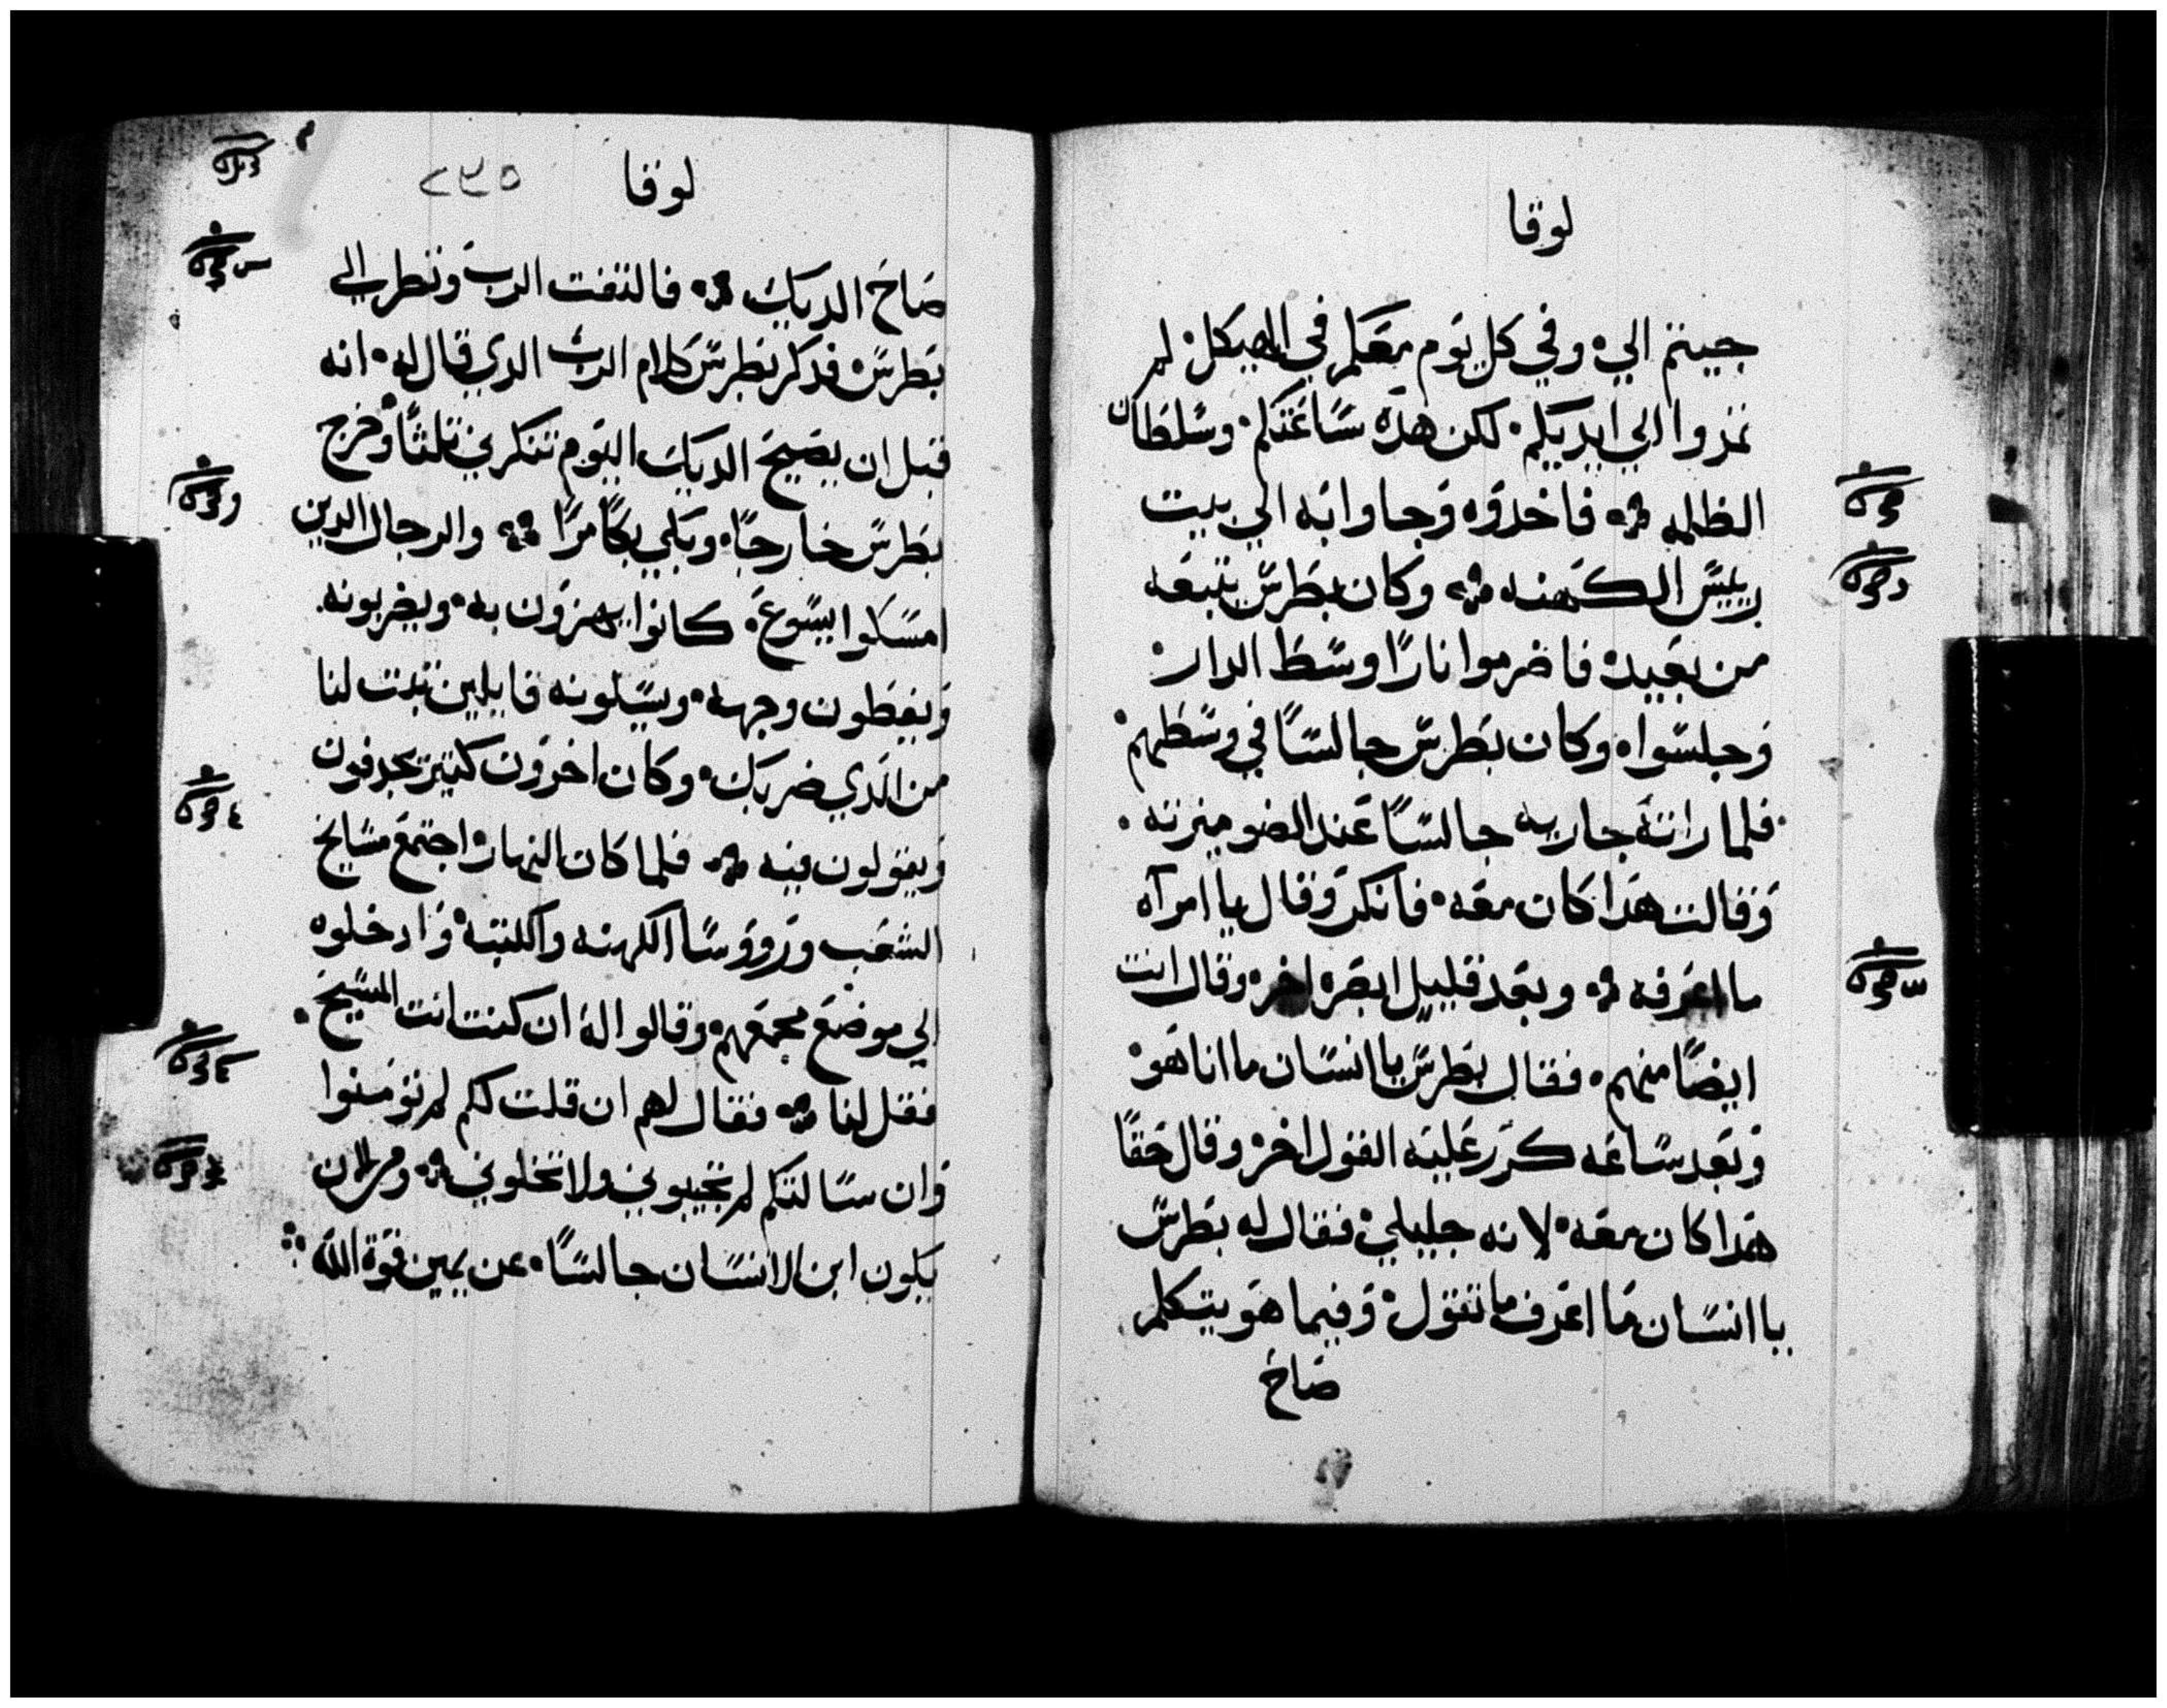 لوقا
جيتم الي وفي كل يوم معكم في الهيكل لم
تمدوا الي ايديكم لكن هده ساعتكم وسلطان
الظلمه فاخدوه وجاوا به الي بيت
رييس الكهنه وكان بطرس يتبعه
من بعيد فاضرموا نارًا وسط الدار
وجلسوا وكان بطرس جالسًا في وسطهم
فلما راته جاريه جالسًا عند الضو ميزته
وقالت هدا كان معه فانكر وقال يا امرآه
ما اعرفه وبعد قليل ابصره اخر وقال انت
ايضًا منهم فقال بطرس يا انسان ما انا هو
وبعد ساعه كرر عليه القول اخر وقال حقًا
هدا كان معه لانه جليلي فقال له بطرس
يا انسان ما اعرف ما تقول وفيما هو يتكلم
صاح
لوقا ٢٣٥
صاح الديك فالتفت الرب ونظر الي
بطرس فدكر بطرس كلام الرب الدي قال له انه
قبل ان يصيح الديك اليوم تنكرني تلتًا وخرج
بطرس خارجًا وبكي بكًا مرًا والرجال الدين
امسكوا يسوع كانوا يهزون به ويضربونه
ويغطون وجهه ويسيلونه قايلين تنبت لنا
من الدي ضربك وكان اخرون كتير يجدفون
ويقولون فيه فلما كان النهار اجتمع مشايخ
الشعب ورووسا الكهنه والكتبه وادخلوه
الي موضع مجمعهم وقالوا له ان كنت انت المسيح
فقل لنا فقال لهم ان قلت لكم لم تومنوا
وان سالتكم لم تجيبوني ولا تخلوني ومن الان
يكون ابن الانسان جالسًا عن يمين قوة الله